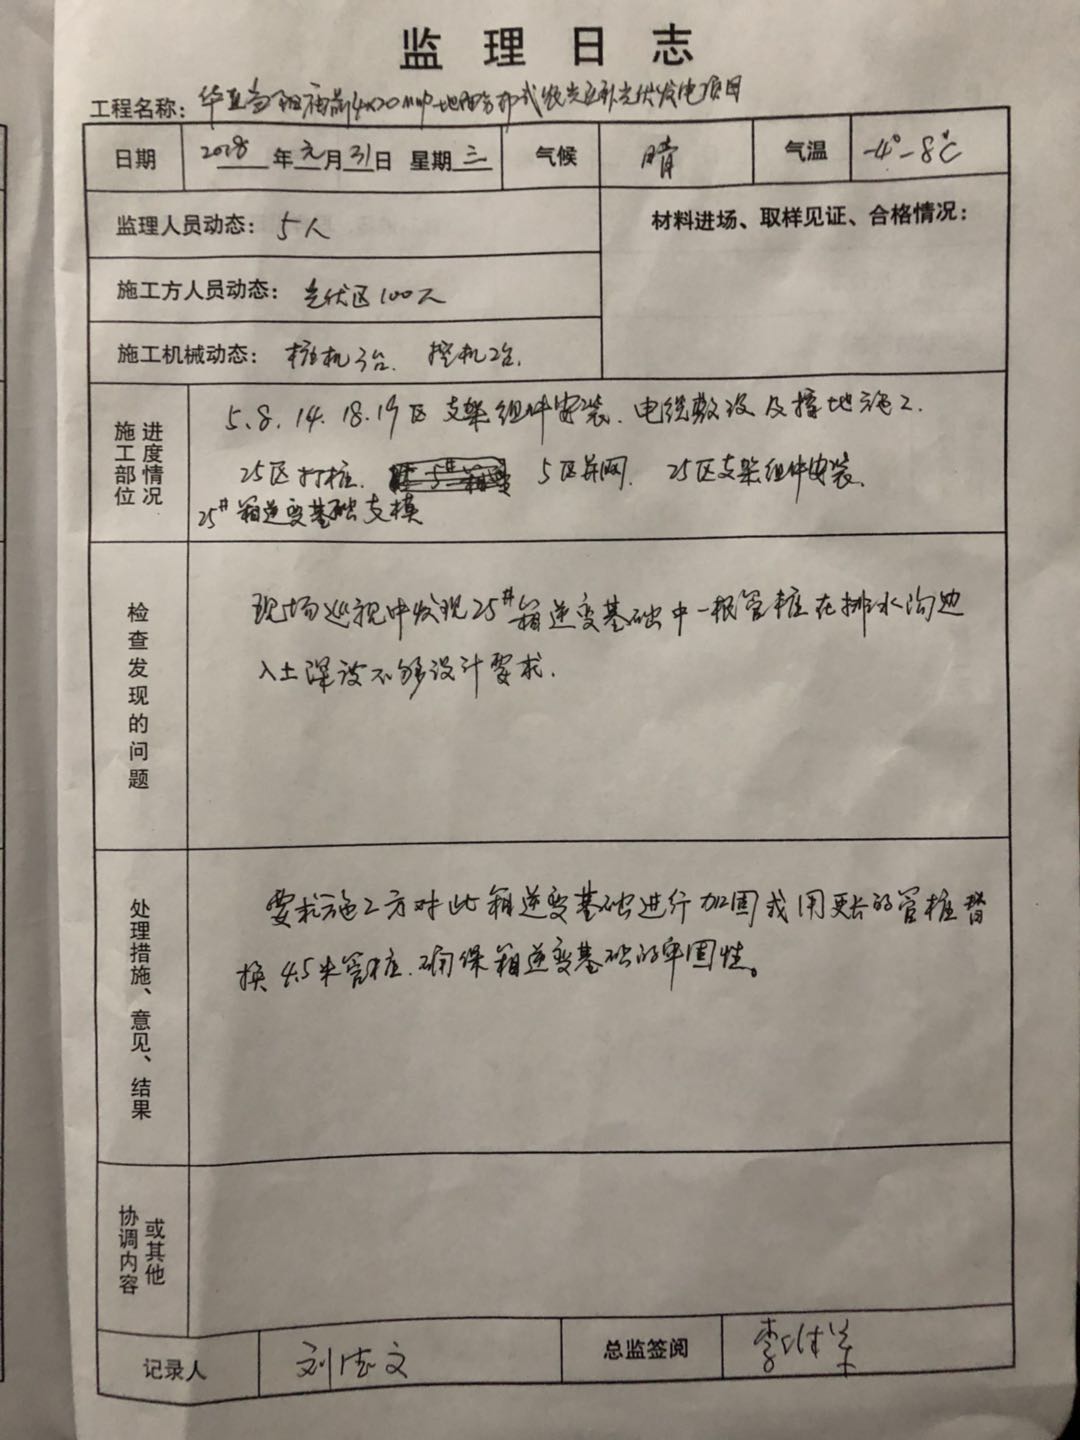 监理日志
工程名称: 华亚当阳庙前4×20MWp地面分布式农光互补光伏发电项目
日期 2018年元月31日 星期三 气候 晴 气温 -4°-8℃
监理人员动态: 5人
材料进场、取样见证、合格情况:
施工方人员动态: 光伏区100人
施工机械动态: 桩机3台. 挖机2台.
进度情况
施工部位
5.8.14.18.19区支架组件安装.电缆敷设及接地施工.
25区打桩. 5区并网. 25区支架组件安装.
25#箱逆变基础支模
检查发现的问题
现场巡视中发现25#箱逆变基础中一根管桩在排水沟边
入土深度不够设计要求.
处理措施、意见、结果
要求施工方对此箱逆变基础进行加固或用更长的管桩替
换4.5米管桩.确保箱逆变基础的牢固性。
或其他
协调内容
记录人 刘德文 总监签阅